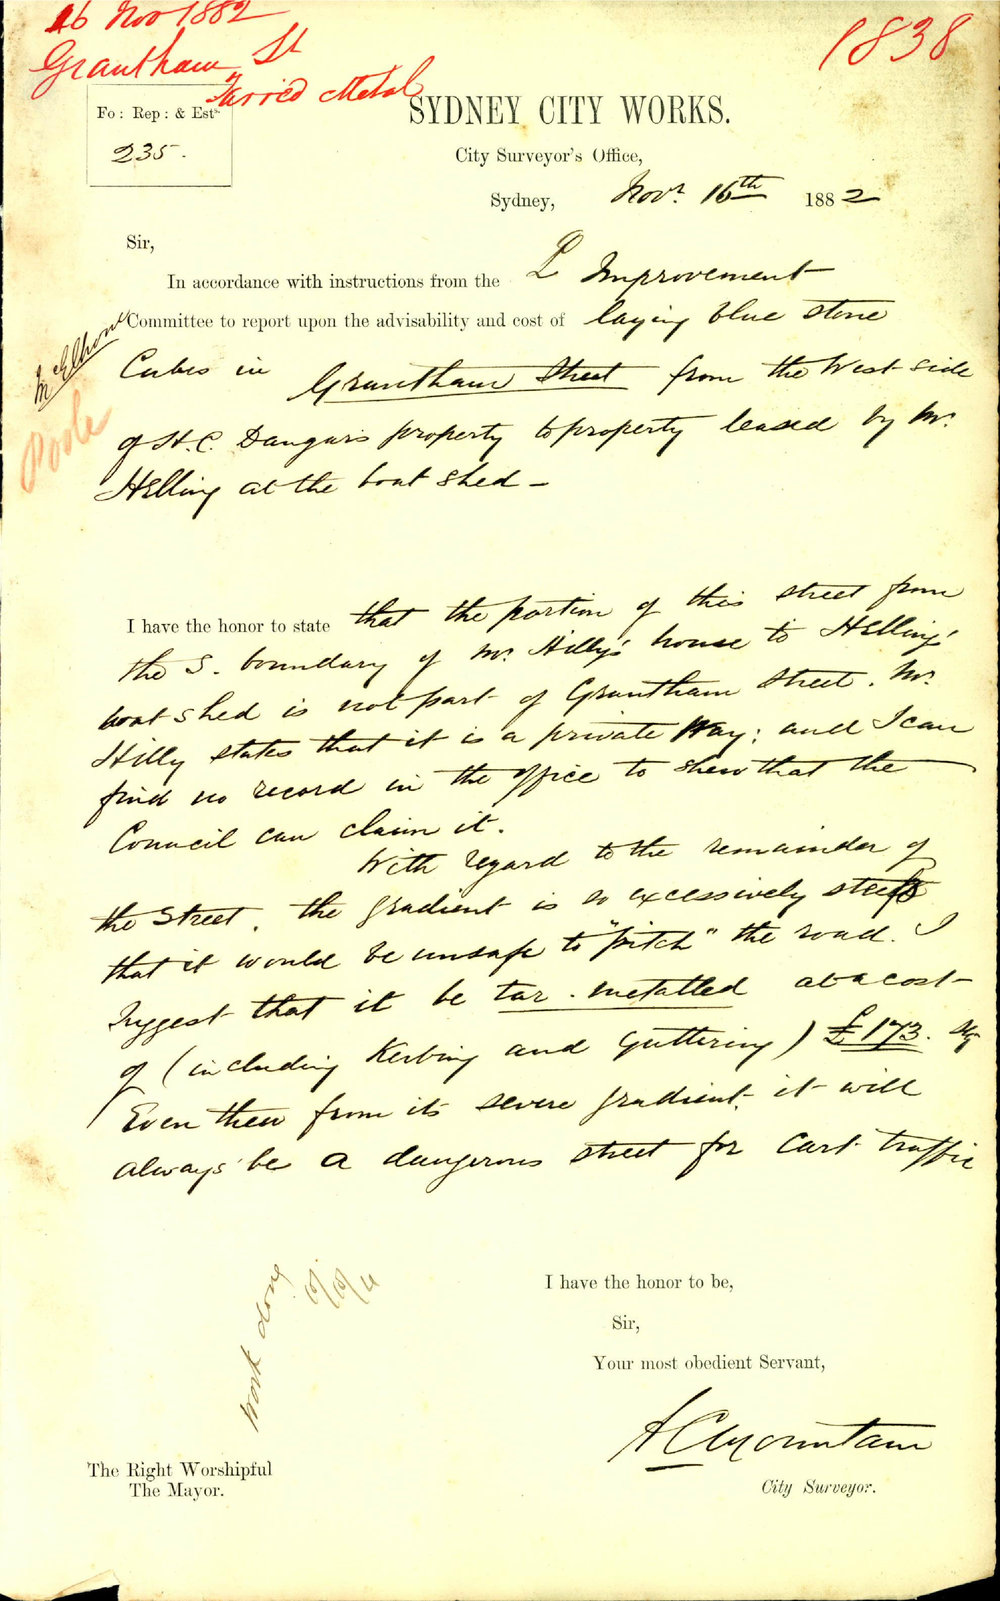 16 Nov 1882
1838
Grantham St
Tarred Metal
Fo: Rep: & Ests.
235.
SYDNEY CITY WORKS.
City Surveyor's Office,
Sydney, Novr. 16th 1882
Sir,
In accordance with instructions from the Improvement
Committee to report upon the advisability and cost of laying blue stone
McElhone
Poole
Cubes in Grantham Street from the West side
of H.C. Dangars property to property leased by Mr.
Helling at the boat shed -
I have the honor to state that the portion of this street from
the S. boundary of Mr. Hilly's house to Helling's
boat shed is not part of Grantham Street. Mr.
Hilly states that it is a private way; and I can
find no record in the office to shew that the
Council can claim it.
With regard to the remainder of
the Street, the gradient is so excessively steep
that it would be unsafe to "pitch" the road. I
suggest that it be tar-metalled at a cost
of (including Kerbing and Guttering) £173.
Even then from its severe gradient, it will
always be a dangerous street for Cart traffic
I have the honor to be,
Sir,
Your most obedient Servant,
work done
A C Mountain
City Surveyor.
The Right Worshipful
The Mayor.